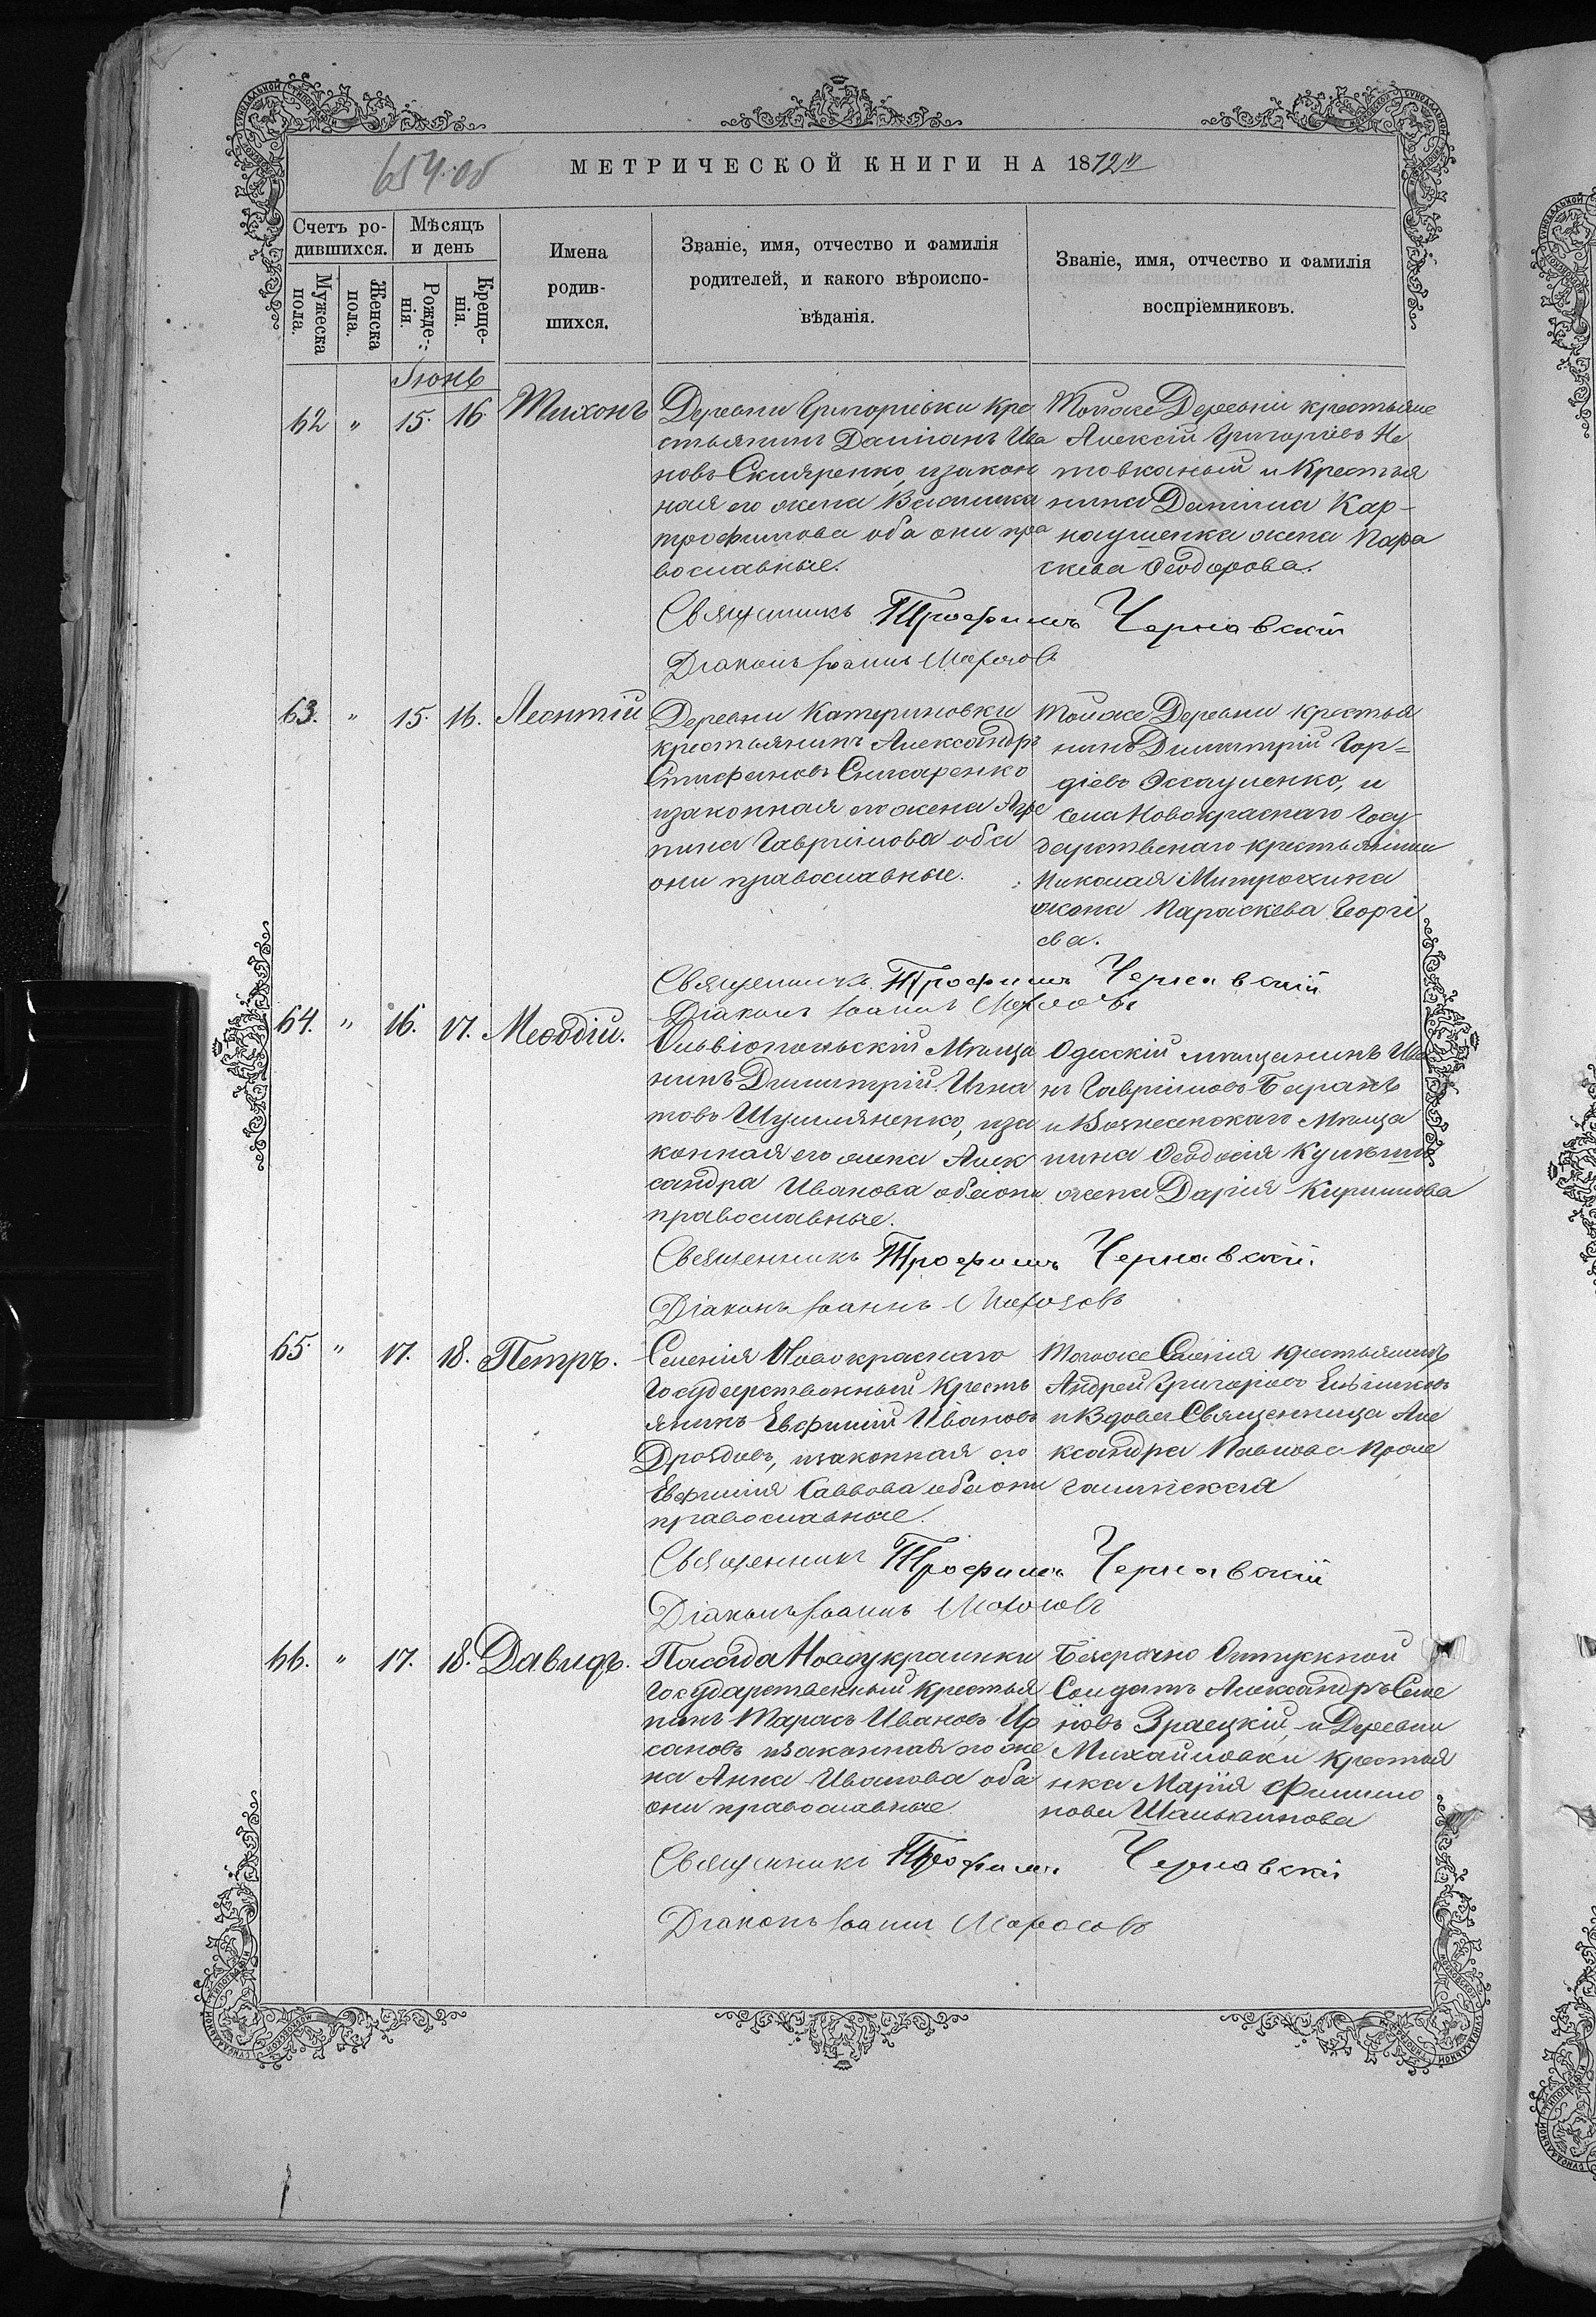 654 об
МЕТРИЧЕСКОЙ КНИГИ НА 1872 г.
Счетъ родившихся.
Мужеска пола.
Женска пола.
Мѣсяцъ и день
Рожденія.
Крещенія.
Имена
родив-
шихся.
Званіе, имя, отчество и фамилія
родителей, и какого вѣроиспо-
вѣданія.
Званіе, имя, отчество и фамилія
воспріемниковъ.
Іюнь
62 " 15. 16. Тихонъ
Деревни Григорьевки кре
стьянинъ Даміанъ Ива
новъ Скляренко, изакон
ная его жена Василиса
трофимова оба они пра
вославные.
Тойже Деревни крестьяне
Алексій Григоріевъ Не
товканый и Крестья
нина Даніила Кар-
наушенка жена Пара
скева Ѳеодорова.
Священникъ Трофимъ Чернавскій
Діаконъ Іоаннъ Морозовъ
63. " 15. 16. Леонтій
Деревни Катериновки
крестьянинъ Александръ
Стефановъ Слюсаренко
изаконная его жена Агре
пина Гавріилова оба
они православные.
Тойже Деревни крестья
нинъ Димитрій Гор=
діевъ Эссауленко, и
села Новокраснаго Госу
дарственаго крестьянина
Николая Митрохина
жена Параскева Георгі
ева.
Священникъ Трофимъ Чернавскій
Діаконъ Іоаннъ Морозовъ
64. " 16. 17. Меѳодій.
Ольвіопольскій Мѣща
нинъ Димитрій Игна
товъ Шумляненко, иза
конная его жена Алек
сандра Иванова оба они
православные.
Одесскій мѣщанинъ Ива
нъ Гавріиловъ Баранъ
и Вознесенскаго Мѣща
нина Ѳеодосія
жена Дарія Кирилова
Священникъ Трофимъ Чернавскій.
Діаконъ Іоаннъ Морозовъ
65. " 17. 18. Петръ.
Селенія Новокраснаго
Государственный Кресть
янинъ Евфимій Ивановъ
Дроздовъ, изаконная его
Евфимія Саввова оба они
православные.
Тогоже Селенія крестьянинъ
Андрей Григоровъ
и Вдова Священница Але
ксандра Павлова
Священникъ Трофимъ Чернавскій
Діаконъ Іоаннъ Морозовъ
66. " 17. 18. Давидъ.
Посада Новоукраинки
Государственный Крестья
нинъ Тарасъ Ивановъ
изаконная его же
на Анна Иванова оба
они православные.
Безсрочно Отпускной
Солдатъ Александръ Семе
новъ Зраецкій, и Деревни
Михайловки Крестья
нка Марія Филипо
нова Шалькинова
Священникъ Трофимъ Чернавскій
Діаконъ Іоаннъ Морозовъ